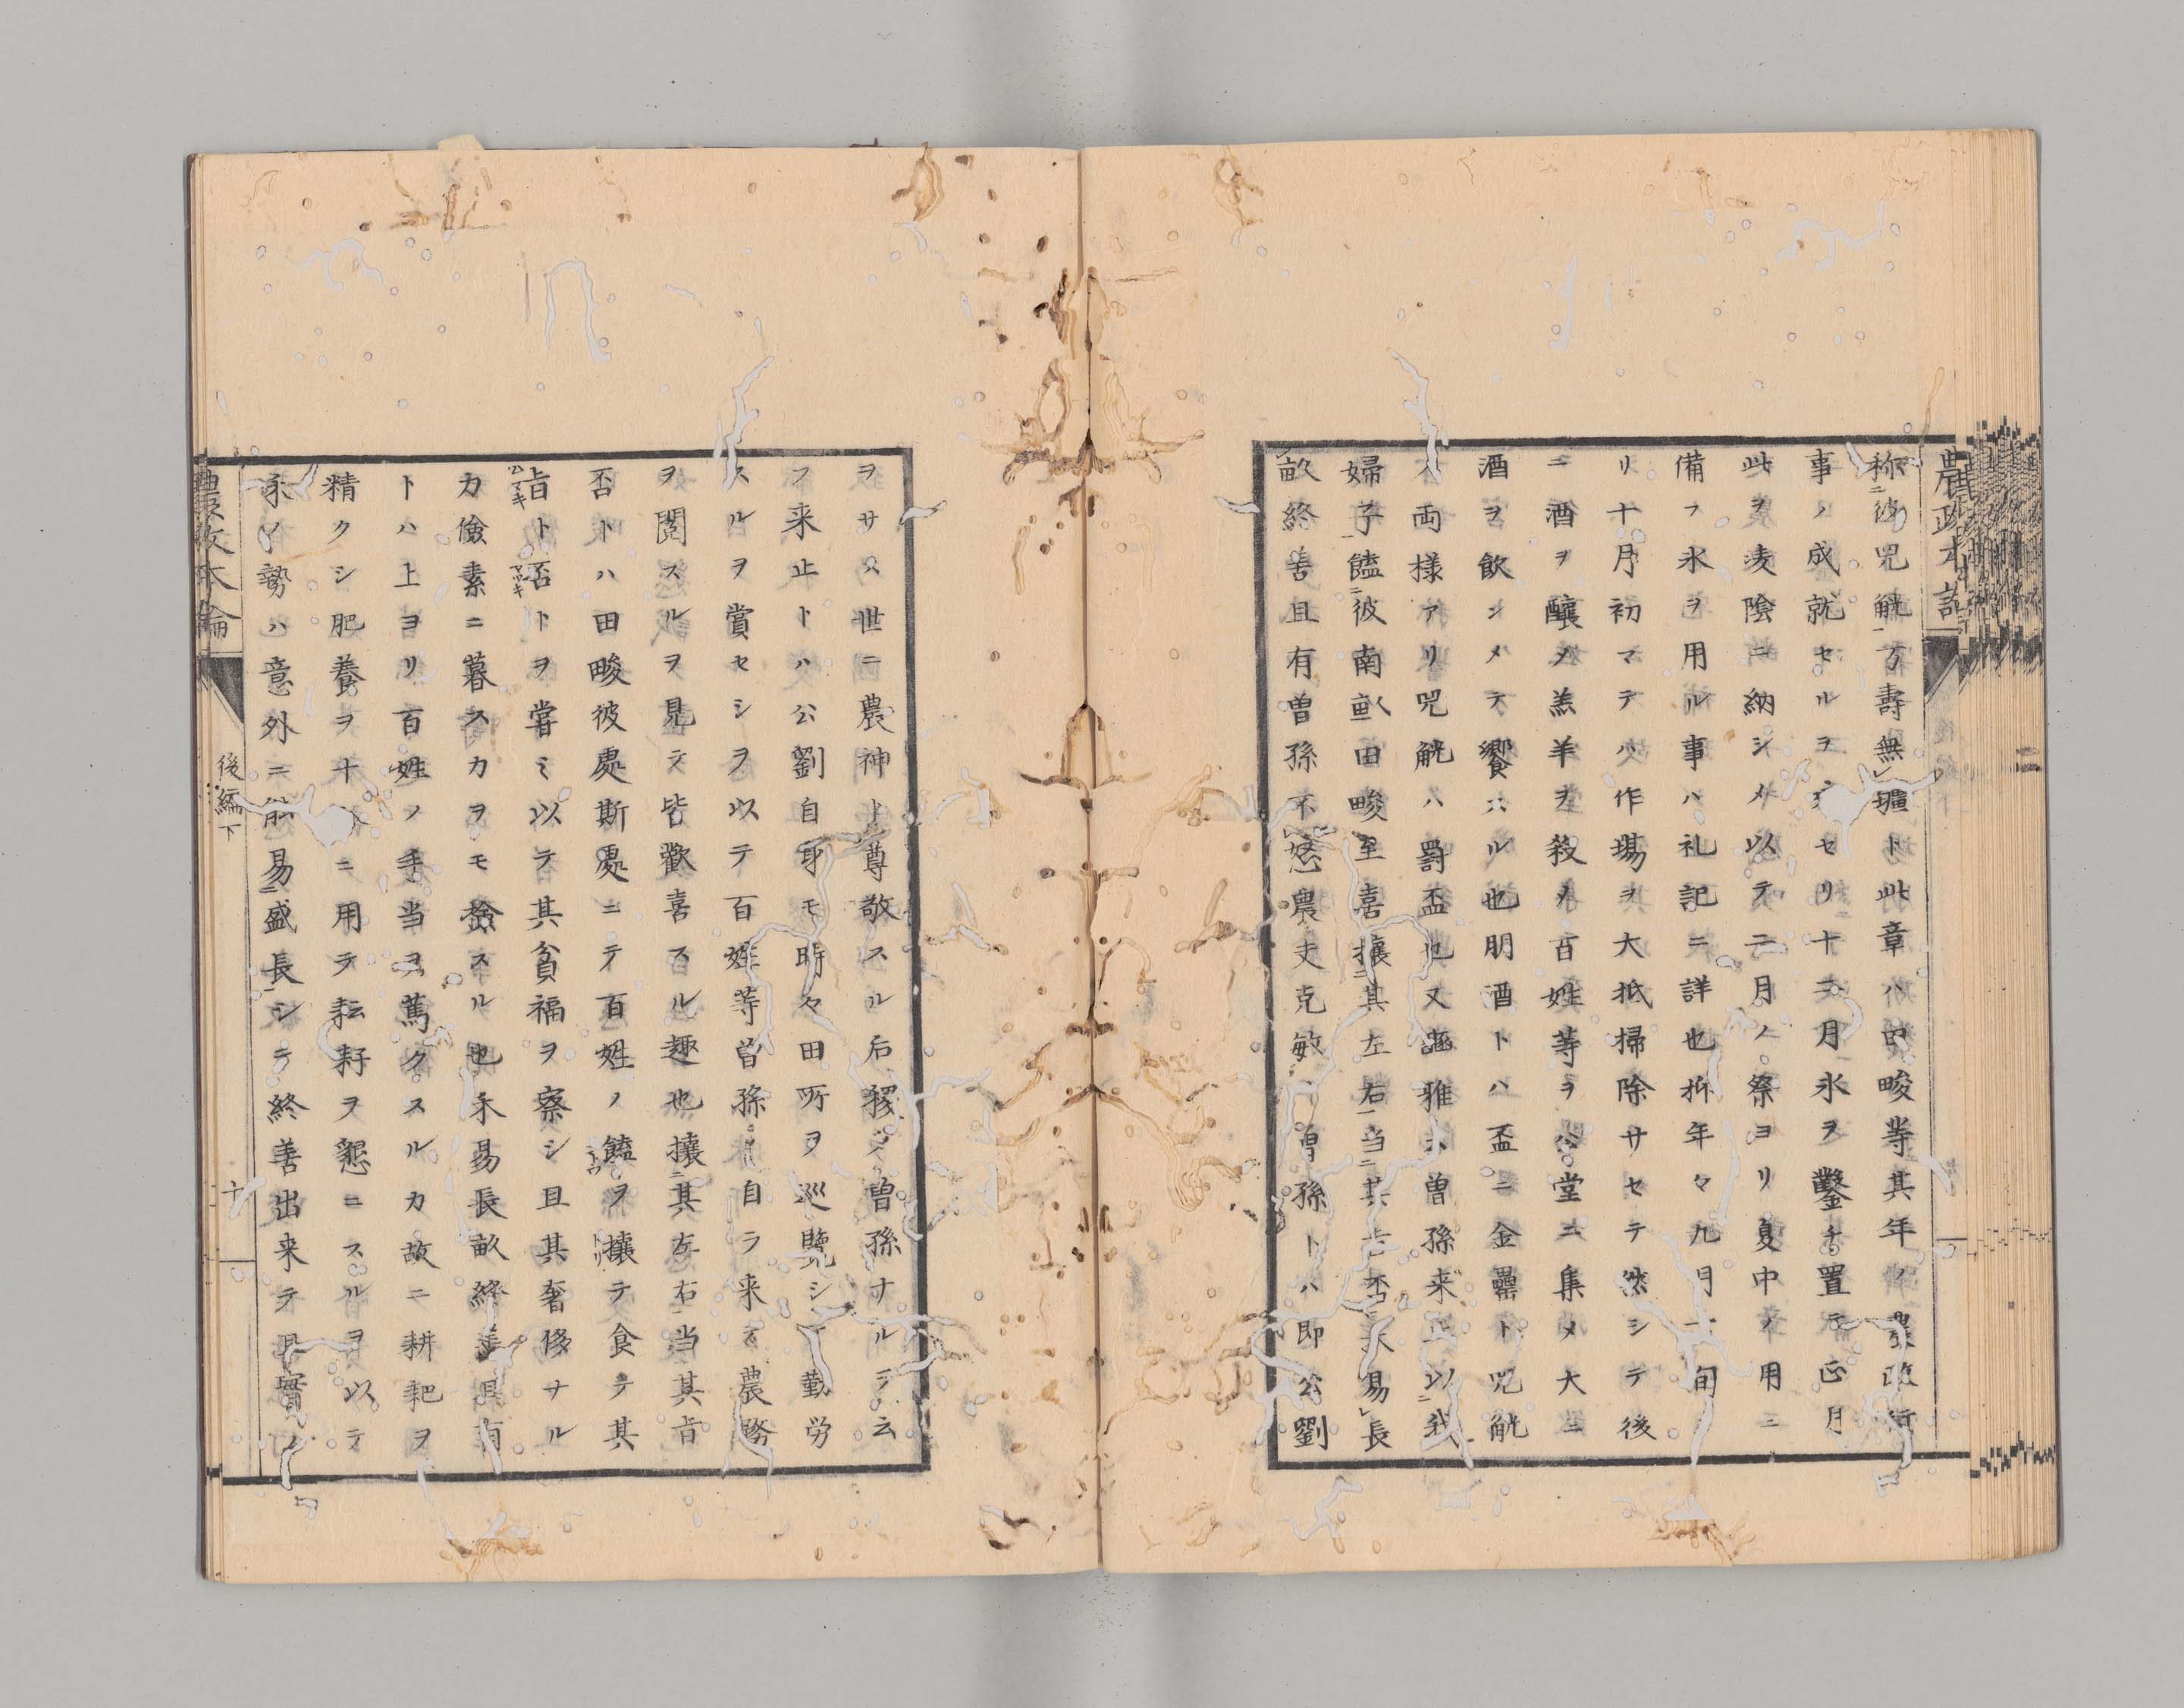 農政本論
称彼兕觥万壽無疆ト此章ハ田畯等其年ノ農政行
事ノ成就セルヲ セリ十二月氷ヲ鑿チ置テ正月
此ヲ凌陰ニ納シメ以テ二月ノ祭ヨリ夏中ノ用ニ
備フ氷ヲ用ル事ハ礼記ニ詳也抑年々九月下旬ヨ
リ十月初マテハ作場ヲ大抵掃除サセテ然シテ後
ニ酒ヲ醸ソ羔羊ヲ殺ソ百姓等ヲ公堂ニ集メ大ニ
酒ヲ飲シメテ饗スル也朋酒トハ盃ニ金罍ト兕觥
ト両様アリ兕觥ハ罰盃也又謳雅ニ曽孫来止以我
婦子饁彼南畝田畯至喜攘其左右当其旨否禾易長
畝終善且有曽孫不怒農夫克敏ト曽孫トハ即公劉
ヲサス世ニ農神ト尊敬スル后稷ノ曽孫ナルテ云
フ来止トハ公劉自身モ時々田所ヲ巡覧シテ勤労
スルヲ賞セシヲ以テ百姓等曽孫ノ自ラ来テ農務
ヲ閲スルヲ見テ皆歡喜スル趣也攘其左右当其旨
否トハ田畯彼處斯處ニテ百姓ノ饁ヲ攘テ食テ其
旨ト否トヲ嘗ミ以テ其貧福ヲ察シ且其奢侈サル
カ儉素ニ暮スカヲモ撿スル也禾易長畝終善且有
トハ上ヨリ百姓ノ手当ヲ篤クスルカ故ニ耕耙ヲ
精クシ肥養ヲ十分ニ用テ耘耔ヲ懇ニスルヲ以テ
禾ノ勢ハ意外ニ 易盛長シテ終善出来テ且實ノ
農政本論
後編下
十